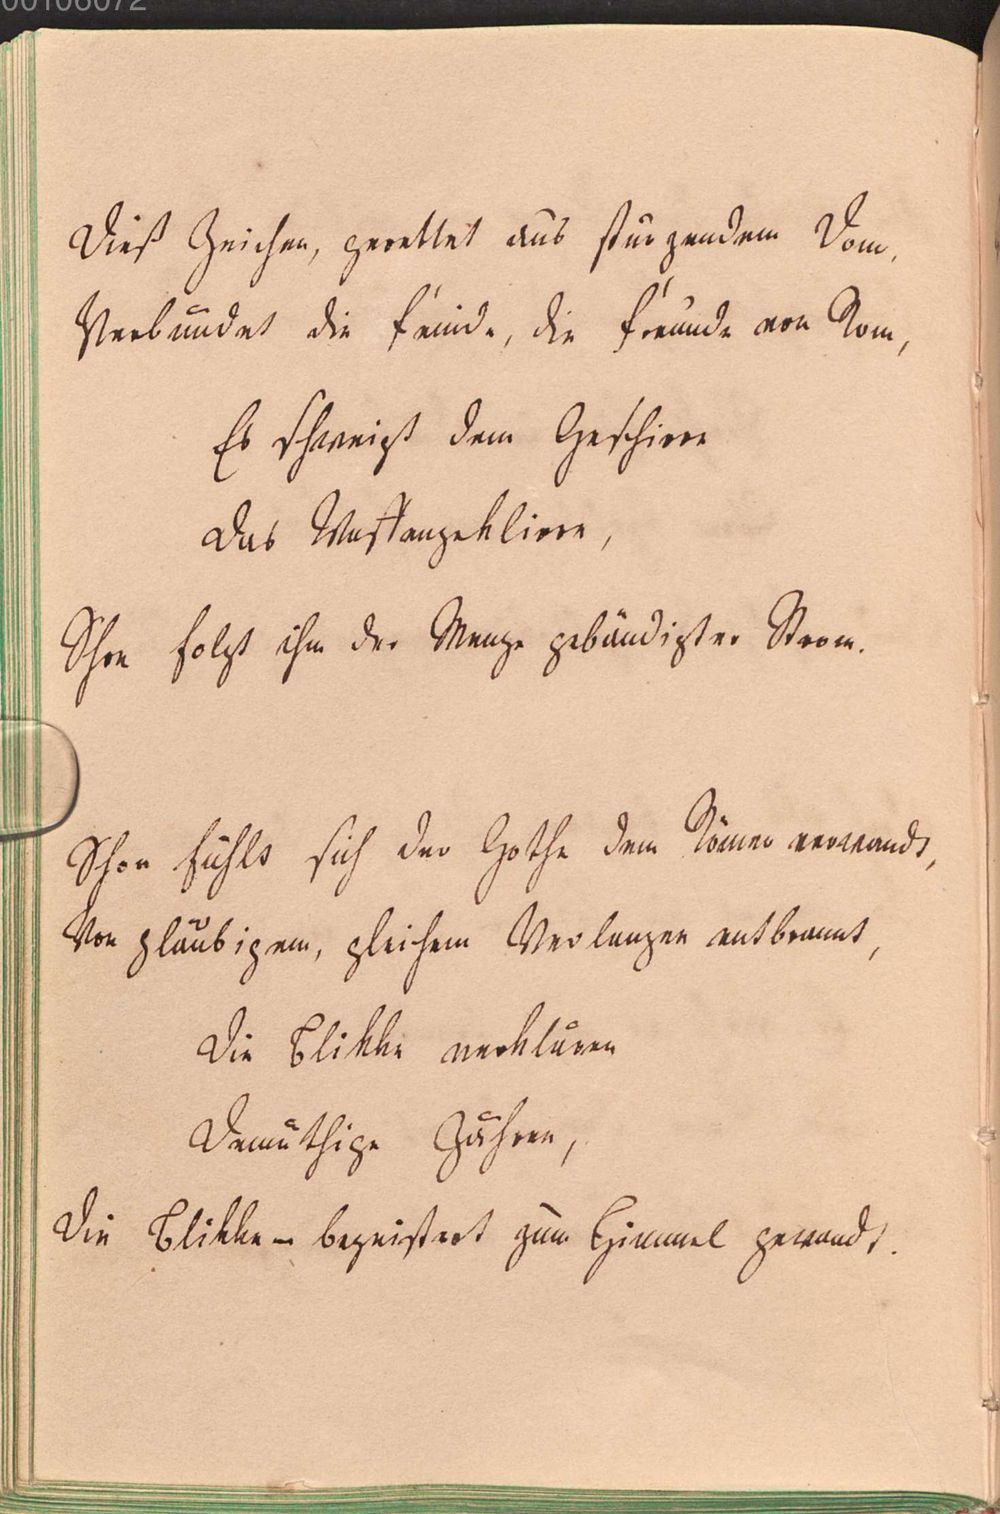 00106072
Dieß Zeichen, gerettet aus sturzendem Dom,
Verbündet die Feinde, die Freunde von Rom,
Es schweigt dem Geschirre
Das Waffengeklirre,
Schon folgt ihm der Menge gebändigter Strom.
Schon fühlt sich der Gothe dem Römer verwandt,
Von gläubigem, gleichem Verlangen entbrannt,
Die Blikke verklären
Demüthige Zähren,
Die Blikke – begeistert zum Himmel gewandt.